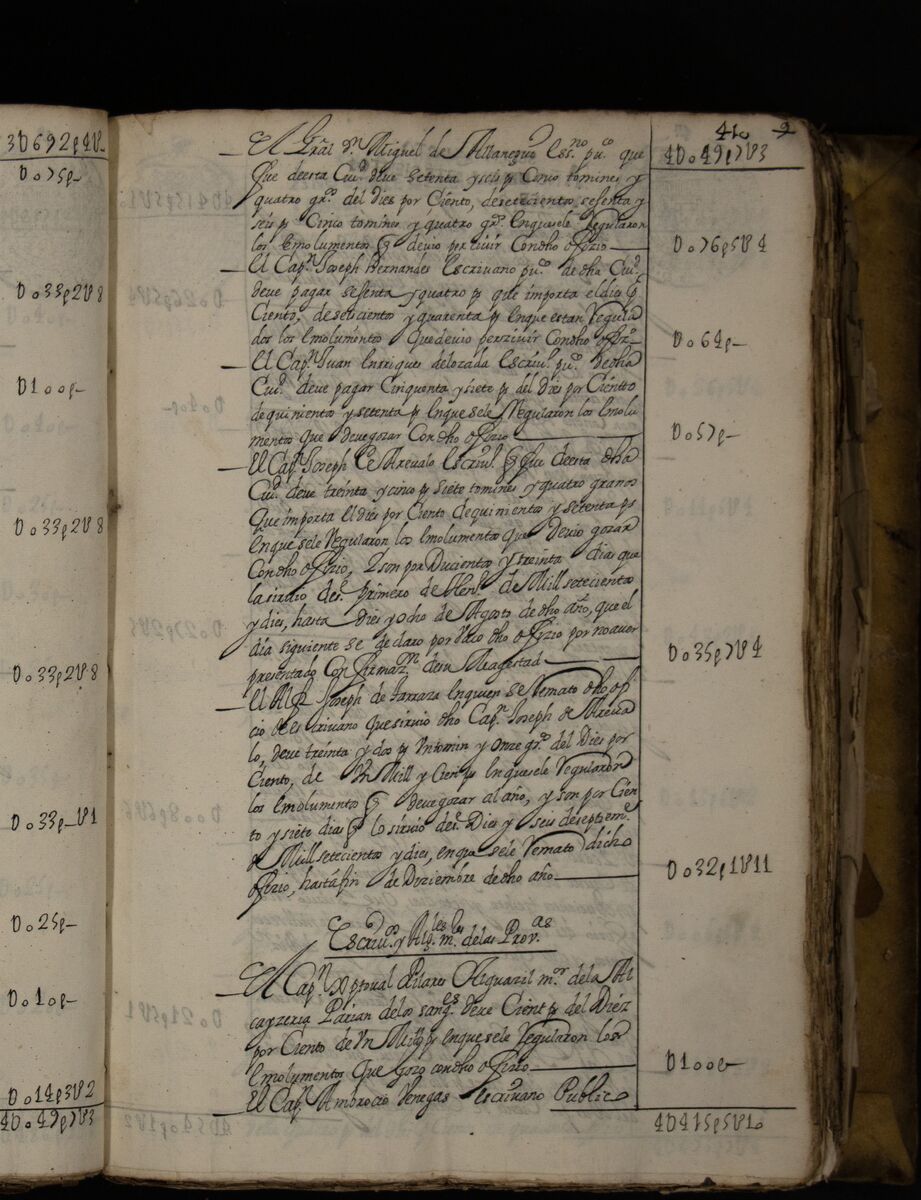 3U692p4U
U075p-
U033p2U8
U100p-
U033p2U8
U033p2U8
U033p-U1
U025p-
U010p-
U014p3U2
4U049p7U3
41 9
4U049p7U3
El Gral Dn Miguel de Allanegui Essno puco que
fue de esta Ciud deve setenta y seis ps Cinco tomines y
quatro grs del Dies por Ciento, de setecientos sesenta y
seis ps Cinco tomines y quatro grs en que se le Regularon
los emolumentos q devio percivir Con dho offizio
U076p5U4
El Capn Joseph Hernandes Escrivano puco de dha Ciud
deve pagar sesenta y quatro ps que importa el dies p
Ciento, de seiscientos y quarenta ps en que estan Regula
dos los emolumentos Que devio percivir Con dho offizo
U064p-
El Capn Juan Enriques de lozada Escrivo puco de dha
Ciud deve pagar Cinquenta y siete ps del Dies por Ciento
de quinientos y setenta ps en que se le Regularon los Emolu
mentos que deve gozar Con dho offizio
U057p-
El Capn Joseph de Arevalo Escrivo q fue de esta dha
Ciud deve treinta y cinco ps siete tomines y quatro granos
Que importa el dies por Ciento de quinientos y setenta ps
en que se le Regularon los emolumentos que devio gozar
Con dho offizio, y son por Ducientos y treinta dias que
la sirvio desde primero de Heno de Mill setecientos
y dies, hasta dies y ocho de Agosto de dho año, que el
dia siguiente se declaro por Vaco dho offizio por no aver
presentado Confirmazn de su Magestad
U035p7U4
El Alfz Joseph de Larraza en quien se Remato dho offi
cio de escrivano que sirvio dho Capn Joseph de Areva
lo, deve treinta y dos ps Un tomin y onze grs del Dies por
Ciento, de Un Mill y Cien ps en que se le Regularon
los emolumentos q deve gozar al año, y son por Cien
to y siete dias q lo sirvio desde Dies y seis de septieme
de Mill setecientos y dies, en que se le Remato dicho
offizio, hasta fin de Diziembre de dho año
U032p1U11
Escrivos y Algles mres de las Provas
El Capn Xptoval Pilares Alguazil mor de la Al
cayzeria Parian de los sangles deve Cient ps del Diez
por Ciento de Un Mill ps en que se le Regularon los
emolumentos Que gozo con dho offizio
U100p
El Capn Ambrocio Venegas Escrivano Publico
4U415p5U10